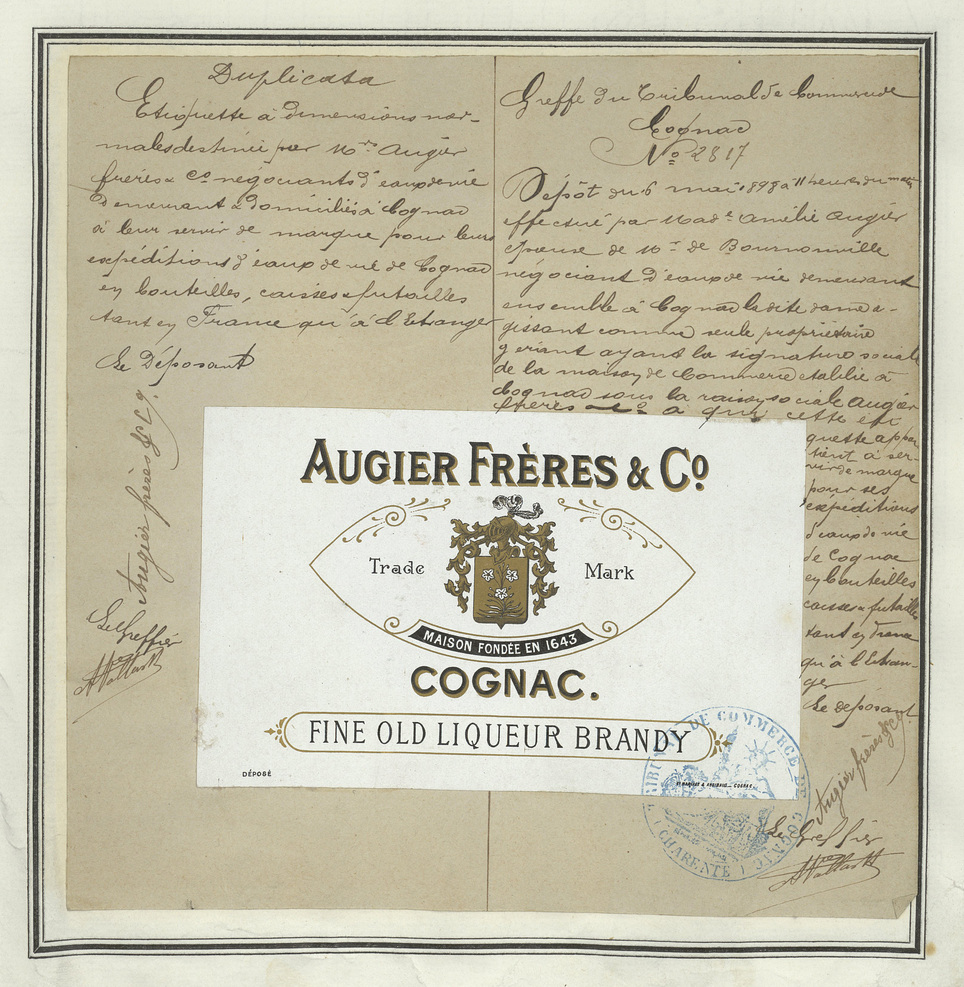 Duplicata
Etiquette à dimensions nor-
males destinée par Mrs Augier
frères & Co négociants d'eaux de vie
demeurant & domiciliés à Cognac
à leur servir de marque pour leurs
expéditions d'eaux de vie de Cognac
en bouteilles, caisses & futailles
tant en France qu'à l'Etranger
Le Déposant
Augier frères & Co
Le Greffier
Greffe du Tribunal de Commerce de
Cognac
No 2817
Dépôt du 6 mai 1898 à 11 heures du matin
effectué par Made Amélie Augier
épouse de Mr de Bournonville
négociant d'eaux de vie demeurant
ensemble à Cognac la dite dame a-
gissant comme seule propriétaire
gérant ayant la signature sociale
de la maison de Commerce établie à
Cognac sous la raison sociale Augier
frères & Co à qui cette éti
quette appar
tient à ser-
vir de marque
pour ses
expéditions
d'eaux de vie
de Cognac
en bouteilles
caisses & futailles
tant en France
qu'à l'Etran-
ger
Le déposant
Augier frères & Co
Le Greffier
AUGIER FRÈRES & Co
Trade Mark
MAISON FONDÉE EN 1643
COGNAC.
FINE OLD LIQUEUR BRANDY
DÉPOSÉ
TRIBUNAL DE COMMERCE DE COGNAC
(CHARENTE)